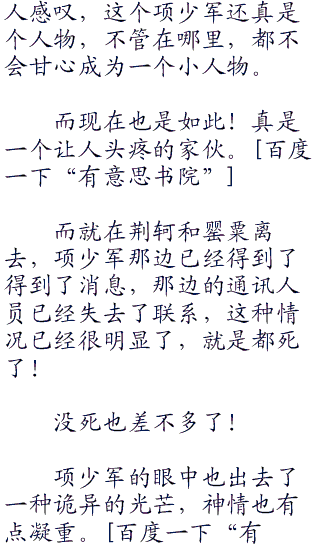 人感叹，这个项少军还真是
个人物，不管在哪里，都不
会甘心成为一个小人物。
而现在也是如此！真是
一个让人头疼的家伙。[百度
一下“有意思书院”]
而就在荆轲和罂粟离
去，项少军那边已经得到了
得到了消息，那边的通讯人
员已经失去了联系，这种情
况已经很明显了，就是都死
了！
没死也差不多了！
项少军的眼中也出去了
一种诡异的光芒，神情也有
点凝重。[百度一下“有